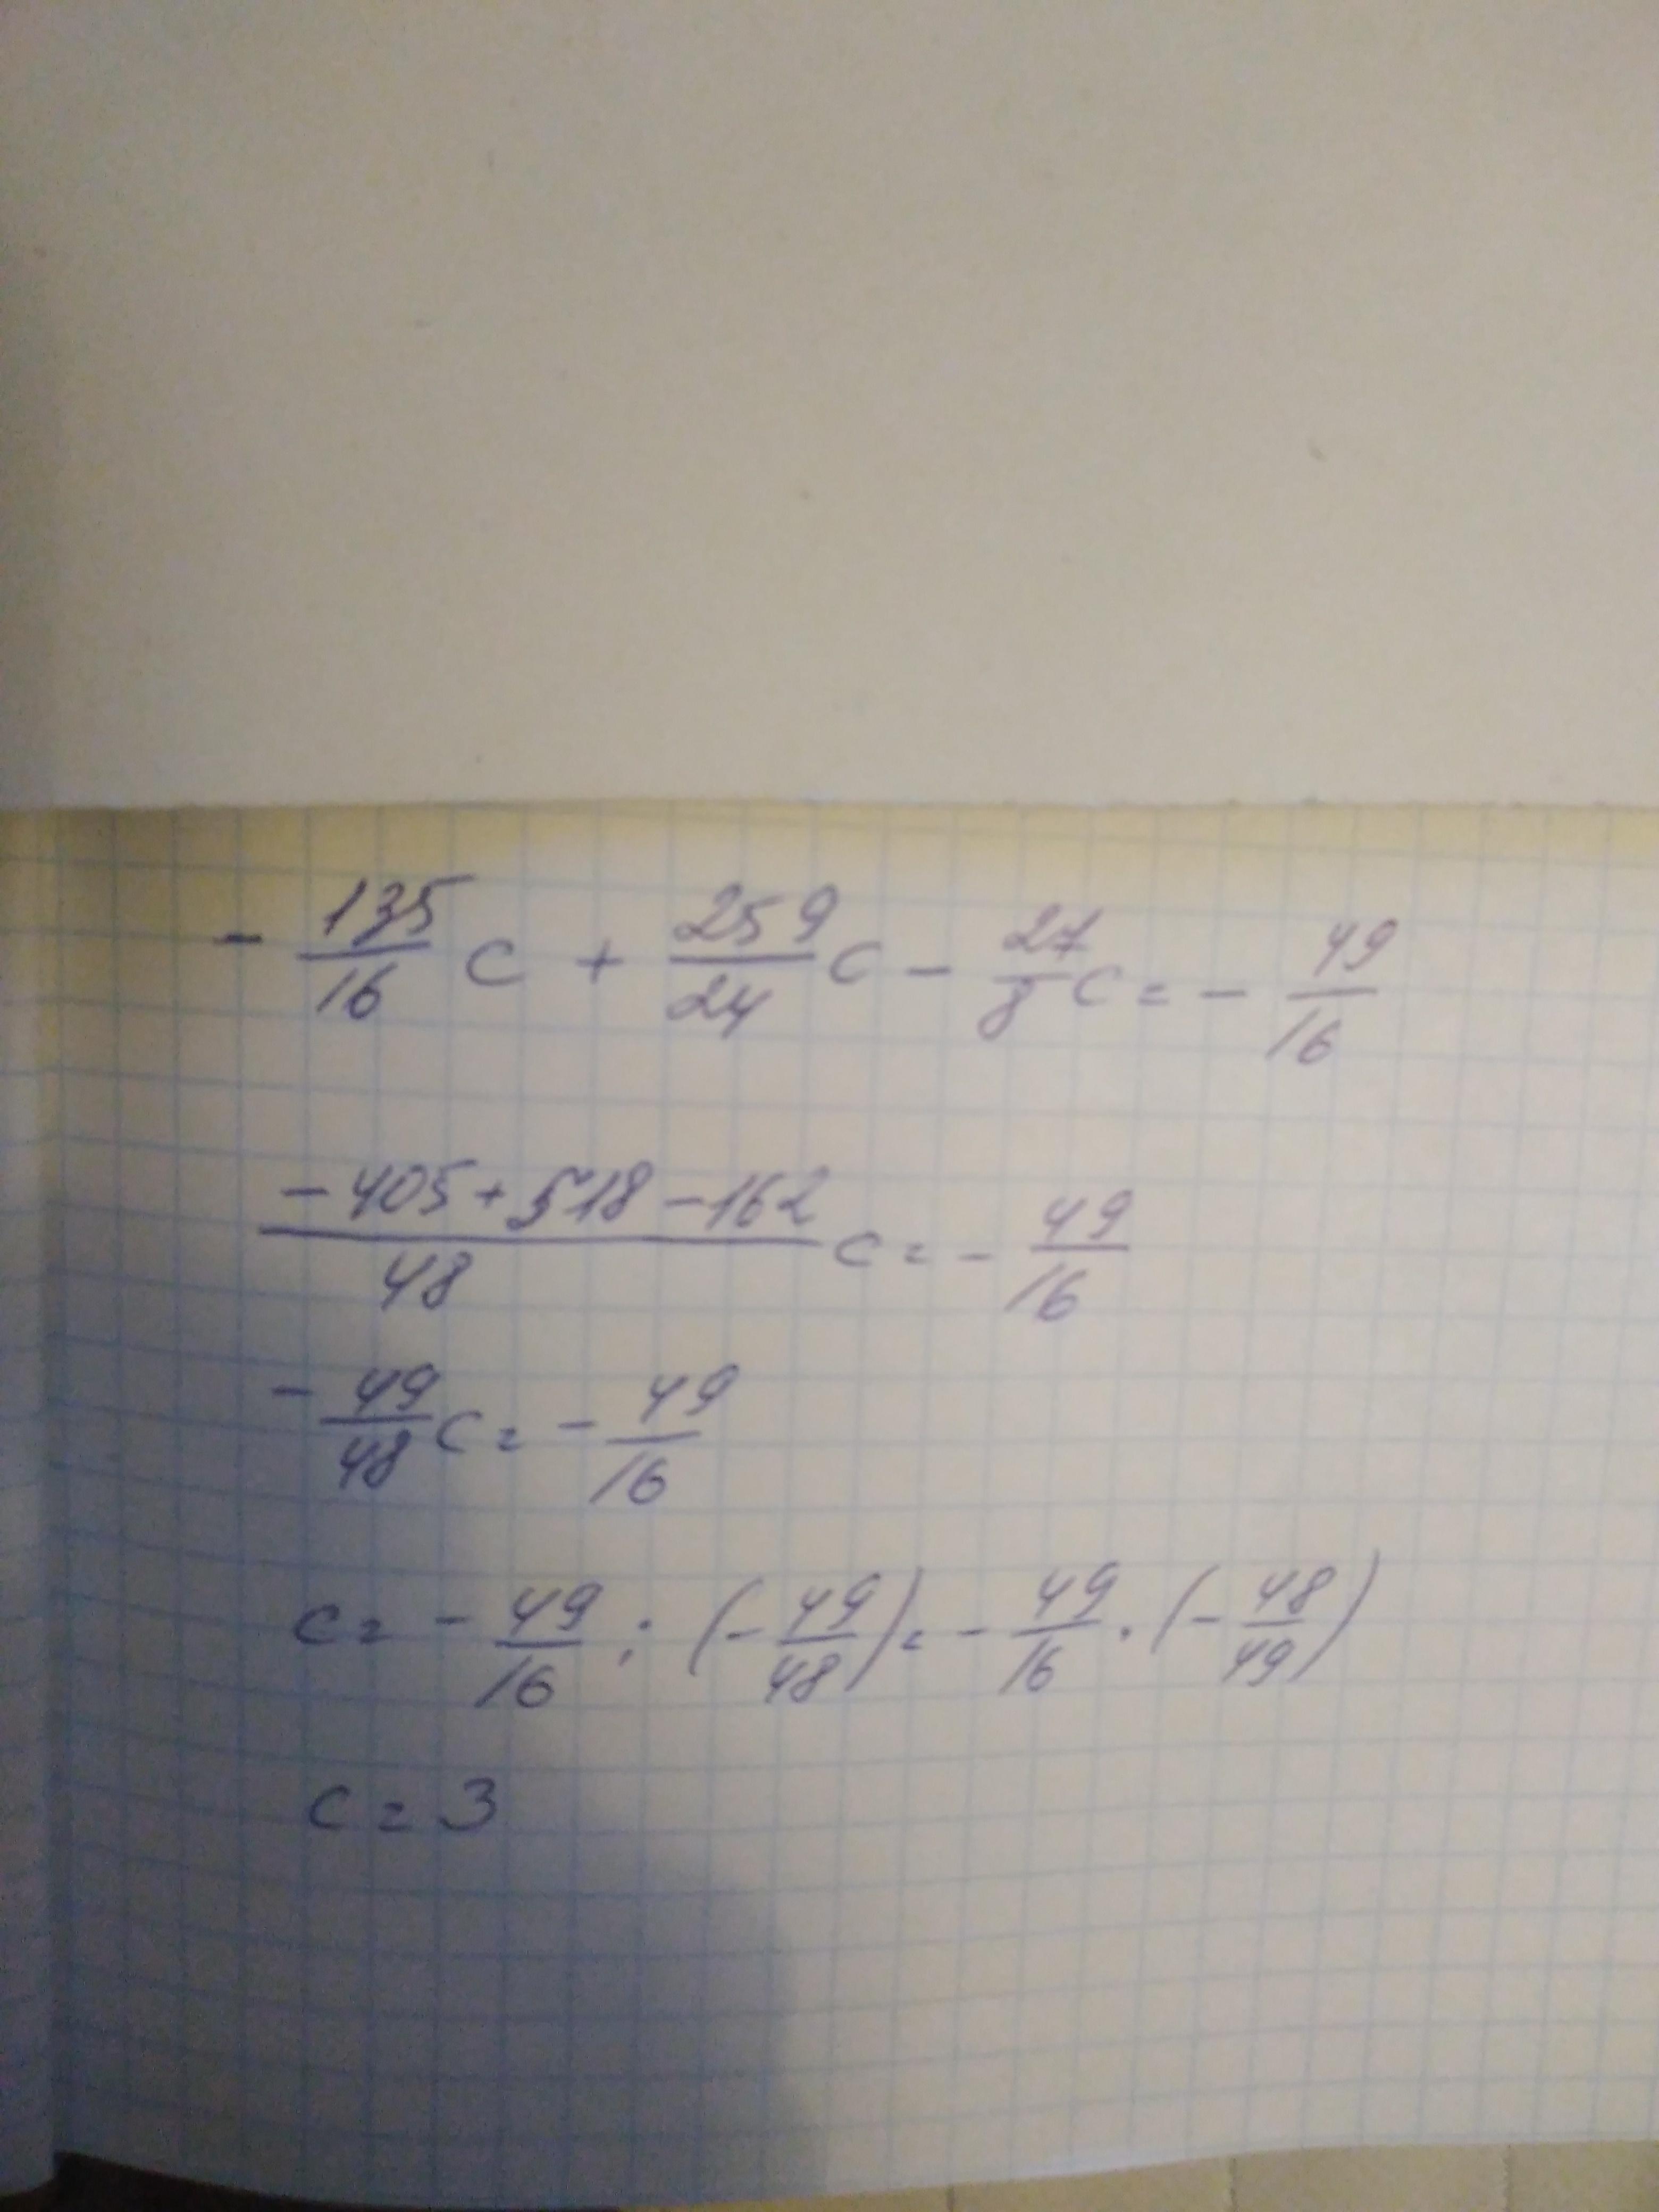 - 135/16 c + 259/24 c - 27/8 c = - 49/16
(-405 + 518 - 162)/48 c = - 49/16
- 49/48 c = - 49/16
c = - 49/16 : (- 49/48) = - 49/16 · (- 48/49)
c = 3